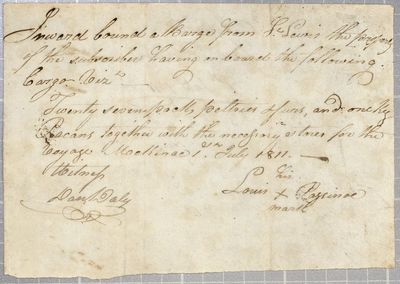 Inward bound a Barge from St. Louis the property
of the subscriber having on board the following
Cargo Viz
Twenty seven packs peltries & furs, and one Keg
Pecans together with the necessary stores for the
Voyage Mackinac 1st July 1811. —
Witness
his
Louis + 
mark
Danl. Daly